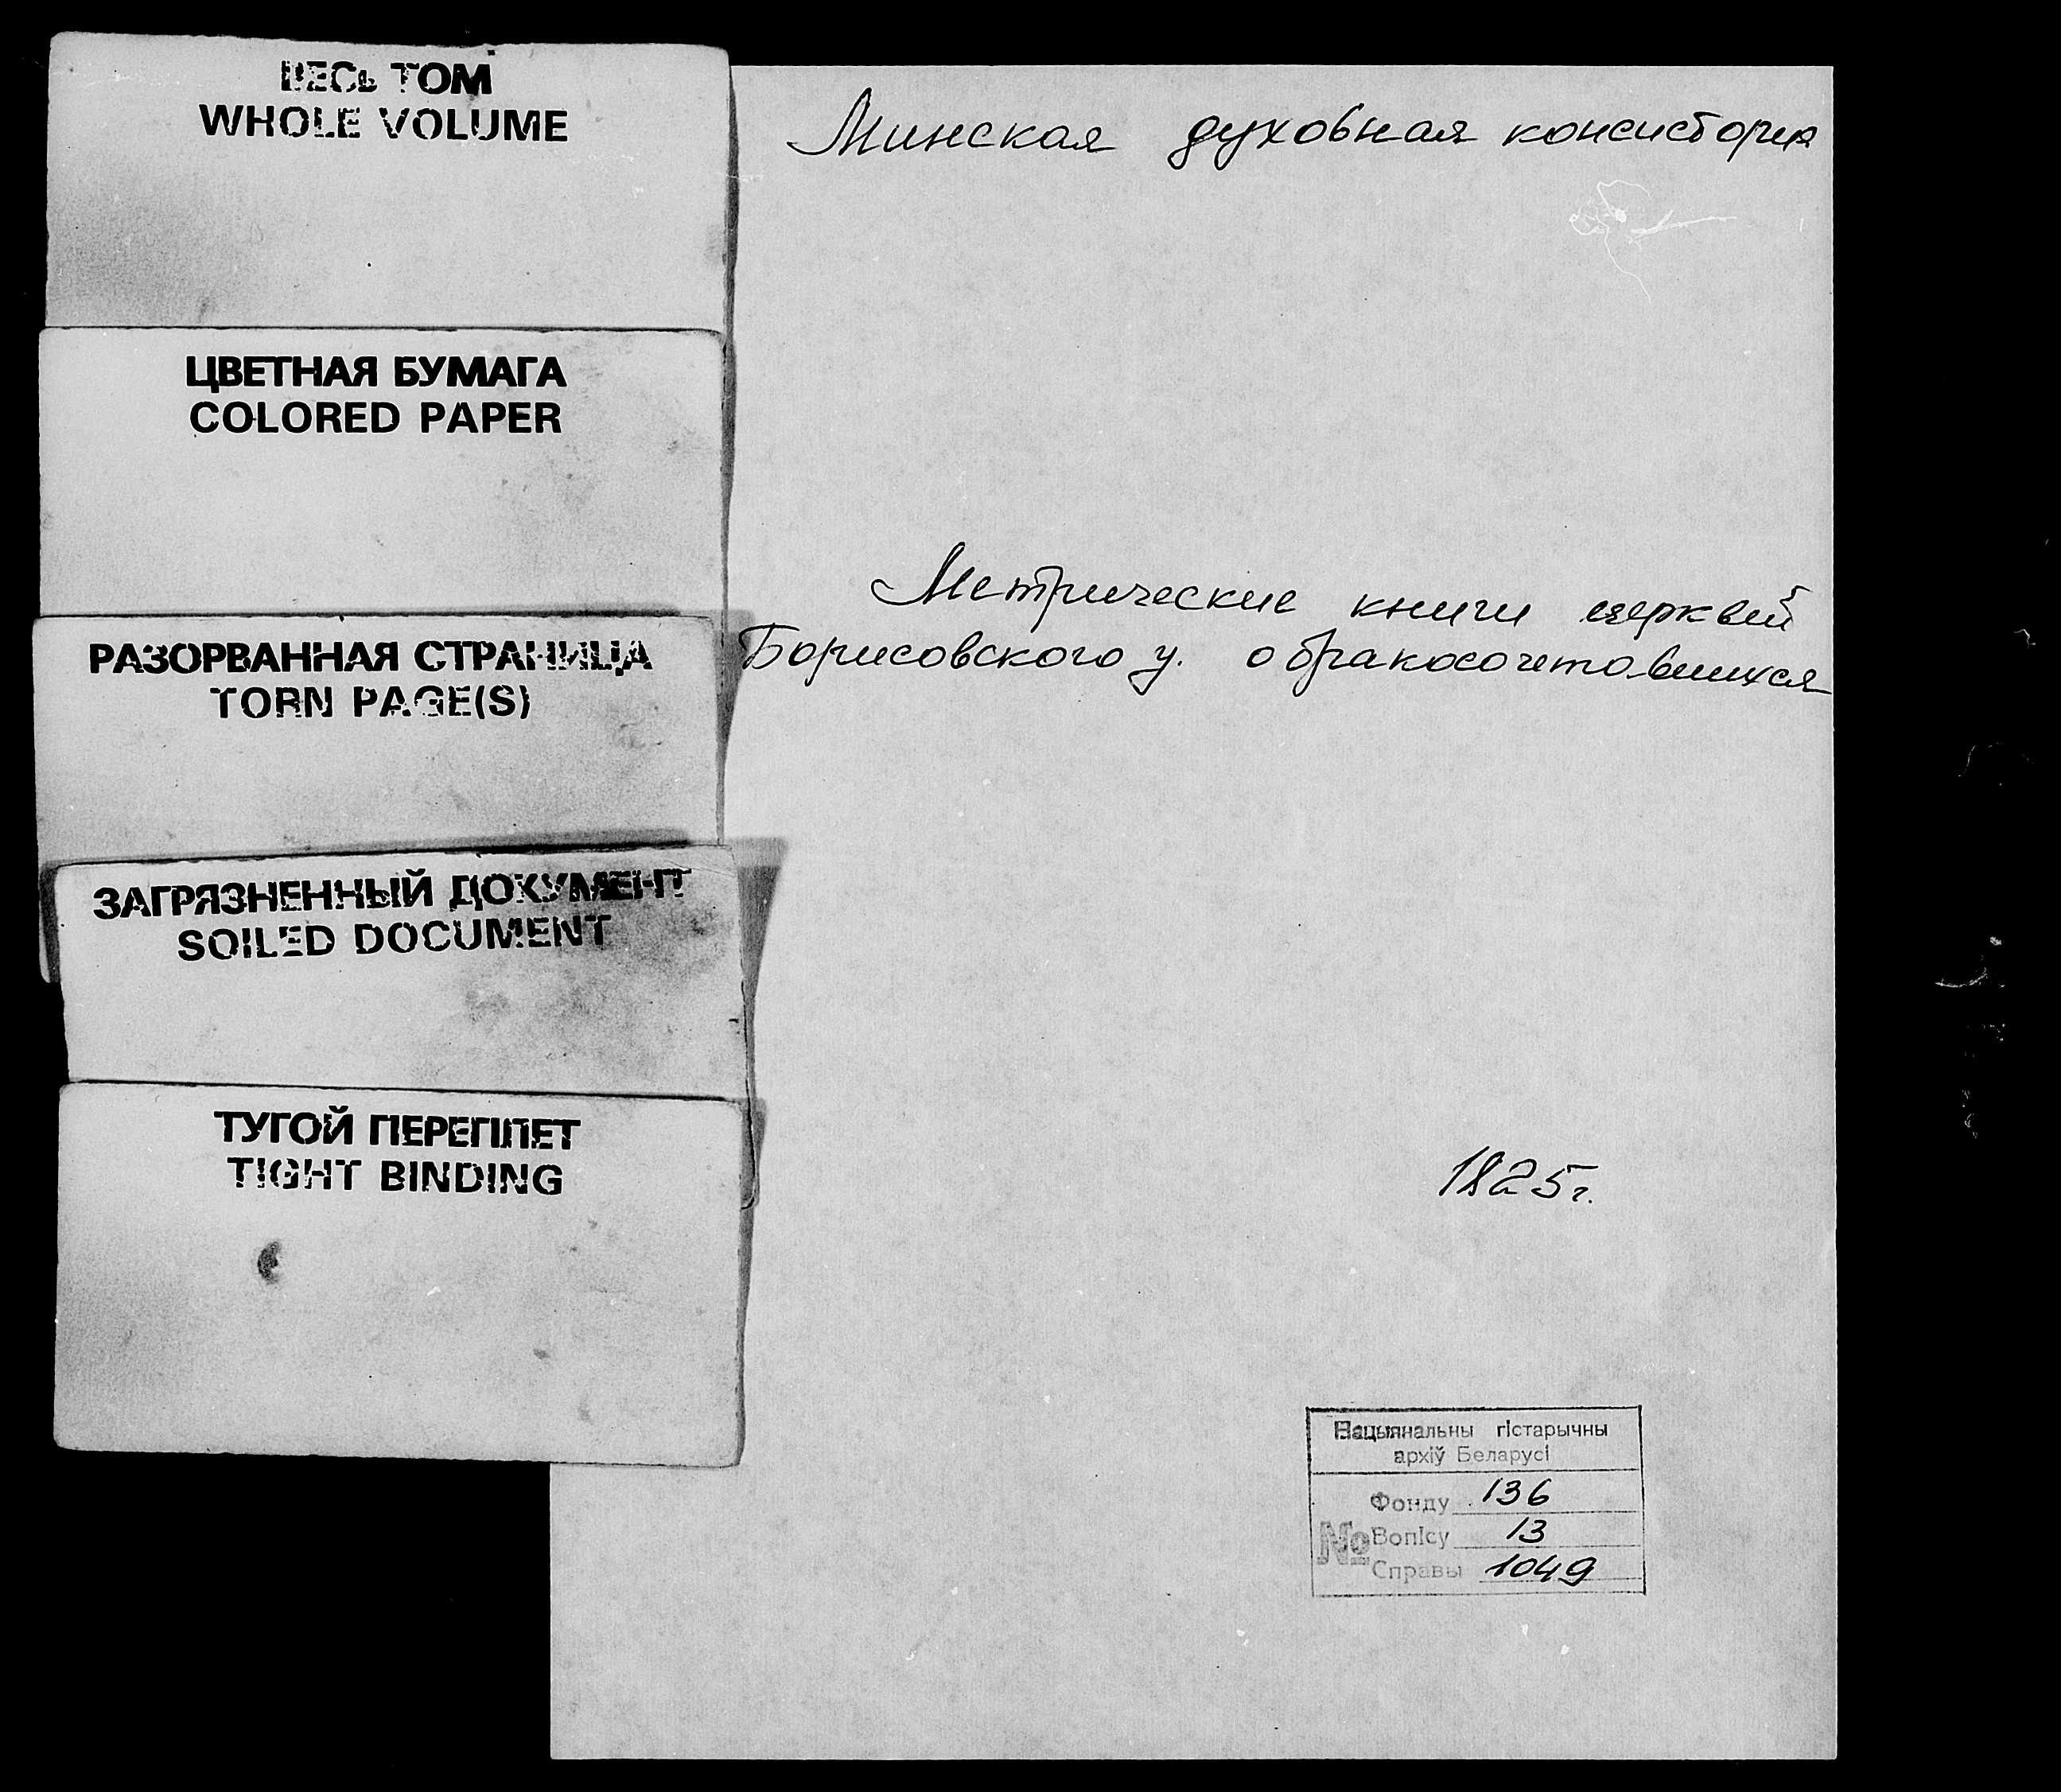 ВЕСЬ ТОМ
WHOLE VOLUME
ЦВЕТНАЯ БУМАГА
COLORED PAPER
РАЗОРВАННАЯ СТРАНИЦА
TORN PAGE(S)
ЗАГРЯЗНЕННЫЙ ДОКУМЕНТ
SOILED DOCUMENT
ТУГОЙ ПЕРЕПЛЕТ
TIGHT BINDING
Минская духовная консистория
Метрические книги церквей
Борисовского у. о бракосочетавшихся
1825г.
Нацыянальны гістарычны
архіў Беларусі
Фонду 136
№ Вопісу 13
Справы 1049